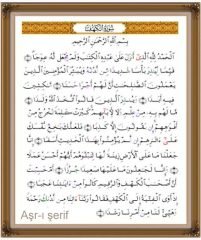 سُورَةُ الْكَهْفِ
بِسْمِ اللَّهِ الرَّحْمَٰنِ الرَّحِيمِ
الْحَمْدُ لِلَّهِ الَّذِي أَنزَلَ عَلَىٰ عَبْدِهِ الْكِتَٰبَ وَلَمْ يَجْعَل لَّهُ عِوَجًا
قَيِّمًا لِّيُنذِرَ بَأْسًا شَدِيدًا مِّن لَّدُنْهُ وَيُبَشِّرَ الْمُؤْمِنِينَ الَّذِينَ
يَعْمَلُونَ الصَّٰلِحَٰتِ أَنَّ لَهُمْ أَجْرًا حَسَنًا مَّٰكِثِينَ
فِيهِ أَبَدًا وَيُنذِرَ الَّذِينَ قَالُوا اتَّخَذَ اللَّهُ وَلَدًا مَّا لَهُم
بِهِ مِنْ عِلْمٍ وَلَا لِءَابَائِهِمْ كَبُرَتْ كَلِمَةً تَخْرُجُ مِنْ
أَفْوَٰهِهِمْ إِن يَقُولُونَ إِلَّا كَذِبًا فَلَعَلَّكَ بَٰخِعٌ نَّفْسَكَ
عَلَىٰ ءَاثَٰرِهِمْ إِن لَّمْ يُؤْمِنُوا بِهَٰذَا الْحَدِيثِ أَسَفًا إِنَّا
جَعَلْنَا مَا عَلَى الْأَرْضِ زِينَةً لَّهَا لِنَبْلُوَهُمْ أَيُّهُمْ أَحْسَنُ عَمَلًا
وَإِنَّا لَجَٰعِلُونَ مَا عَلَيْهَا صَعِيدًا جُرُزًا أَمْ حَسِبْتَ
أَنَّ أَصْحَٰبَ الْكَهْفِ وَالرَّقِيمِ كَانُوا مِنْ ءَايَٰتِنَا عَجَبًا
إِذْ أَوَى الْفِتْيَةُ إِلَى الْكَهْفِ فَقَالُوا رَبَّنَا ءَاتِنَا مِن لَّدُنكَ رَحْمَةً
وَهَيِّئْ لَنَا مِنْ أَمْرِنَا رَشَدًا
Aşr-ı şerif